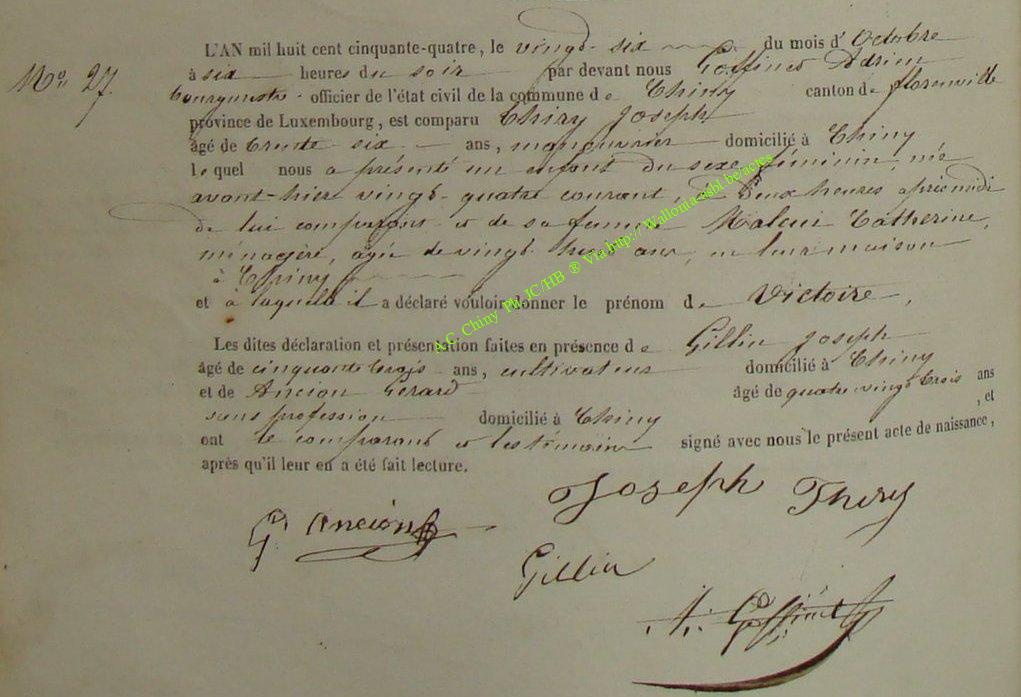 No. 27.
L'AN mil huit cent cinquante-quatre, le vingt-six du mois d' Octobre
à six heures du soir par devant nous Goffinet Adrien
bourgmestre officier de l'état civil de la commune de Chiny canton de florenville
province de Luxembourg, est comparu Thiry Joseph
âgé de trente six ans, manouvrier domicilié à Chiny
lequel nous a présenté un enfant du sexe féminin, née
avant-hier vingt-quatre courant, à deux heures après midi
de lui comparant et de sa femme Catherine,
ménagère, agée de vingt ans, en leur maison
à Chiny
et à laquelle il a déclaré vouloir donner le prénom de Victoire,
Les dites déclaration et présentation faites en présence de Gillin Joseph
âgé de cinquante trois ans, cultivateur domicilié à Chiny
et de Ancion Gérard âgé de quatre vingt trois ans
sans profession domicilié à Chiny , et
ont le comparant et les témoins signé avec nous le présent acte de naissance,
après qu'il leur en a été fait lecture.
Joseph Thiry
G. Ancion
Gillin
A. Goffinet
A.C. Chiny Ph JC/HB ® Via http://Wallonia-asbl.be/actes